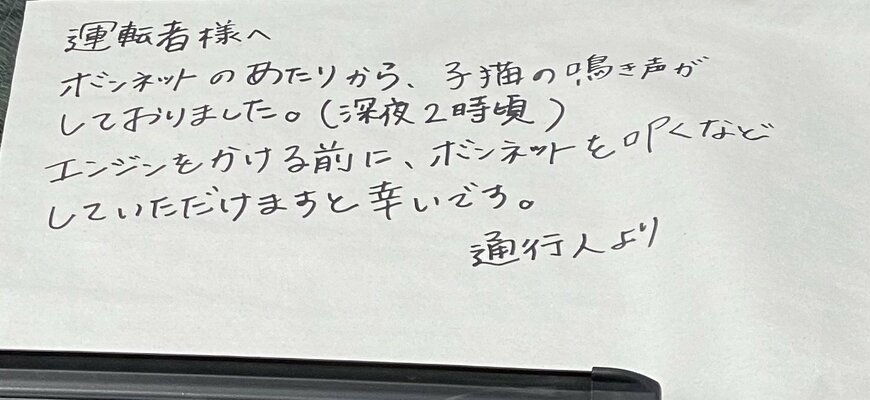 運転者様へ
ボンネットのあたりから、子猫の鳴き声が
しておりました。(深夜2時頃)
エンジンをかける前に、ボンネットを叩くなど
していただけますと幸いです。
通行人より